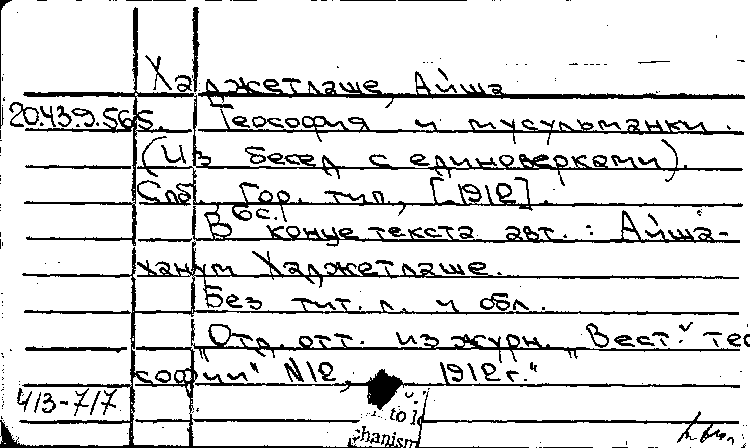 Хаджетлаше, Айша
20.439.565. Теософия и мусульманки.
(Из бесед с единоверками).
Спб., Гор. тип., [1912].
6с.
В конце текста авт.: Айша-
ханум Хаджетлаше.
Без тит. л. и обл.
"Отд. отт. из журн. „Вест. тео
софии" N12, 1912г."
413-717
to le
chanism